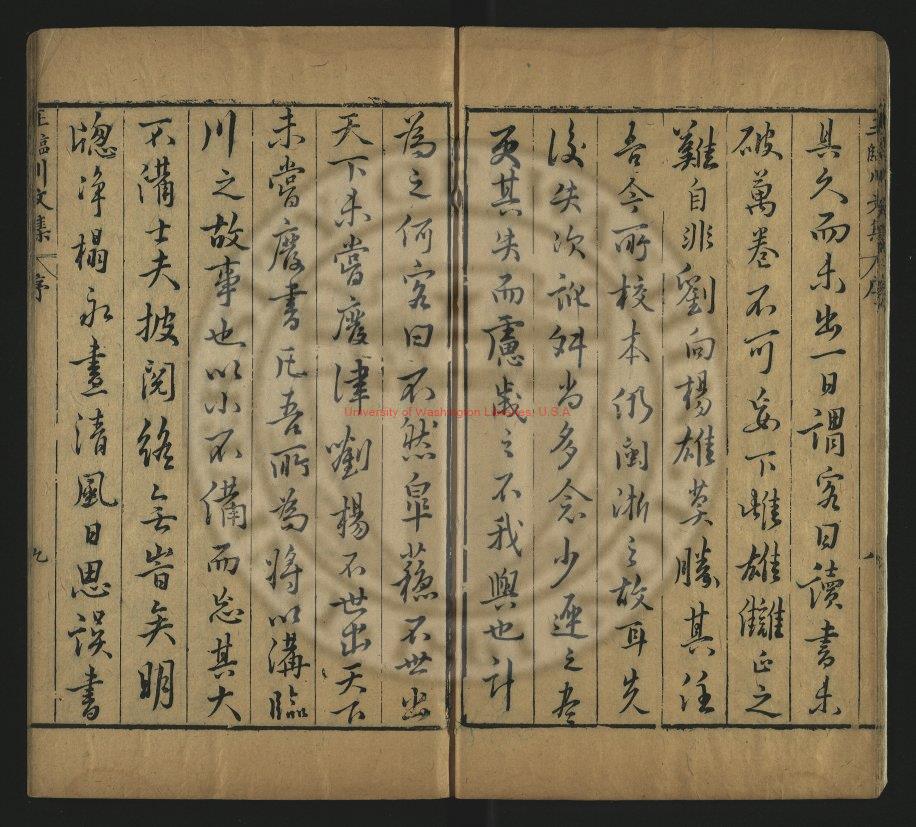 具久而未出一日謂客曰讀書未
破萬卷不可妄下雌雄讎正之
難自非劉向楊雄莫勝其任
吾今所校本仍閩浙之故耳先
後失次訛舛尚多念少遲之盡
更其失而慮歲之不我與也計
為之何客曰不然皐蘓不世出
天下未嘗廢律劉楊不世出天下
未嘗廢書凡吾所為將以備臨
川之故事也以小不備而忘其大
不備士夫披閱終無旹矣明
牕淨榻永晝清風日思誤書
王臨川文集
序
八
王臨川文集
序
九
University of Washington Libraries, U.S.A